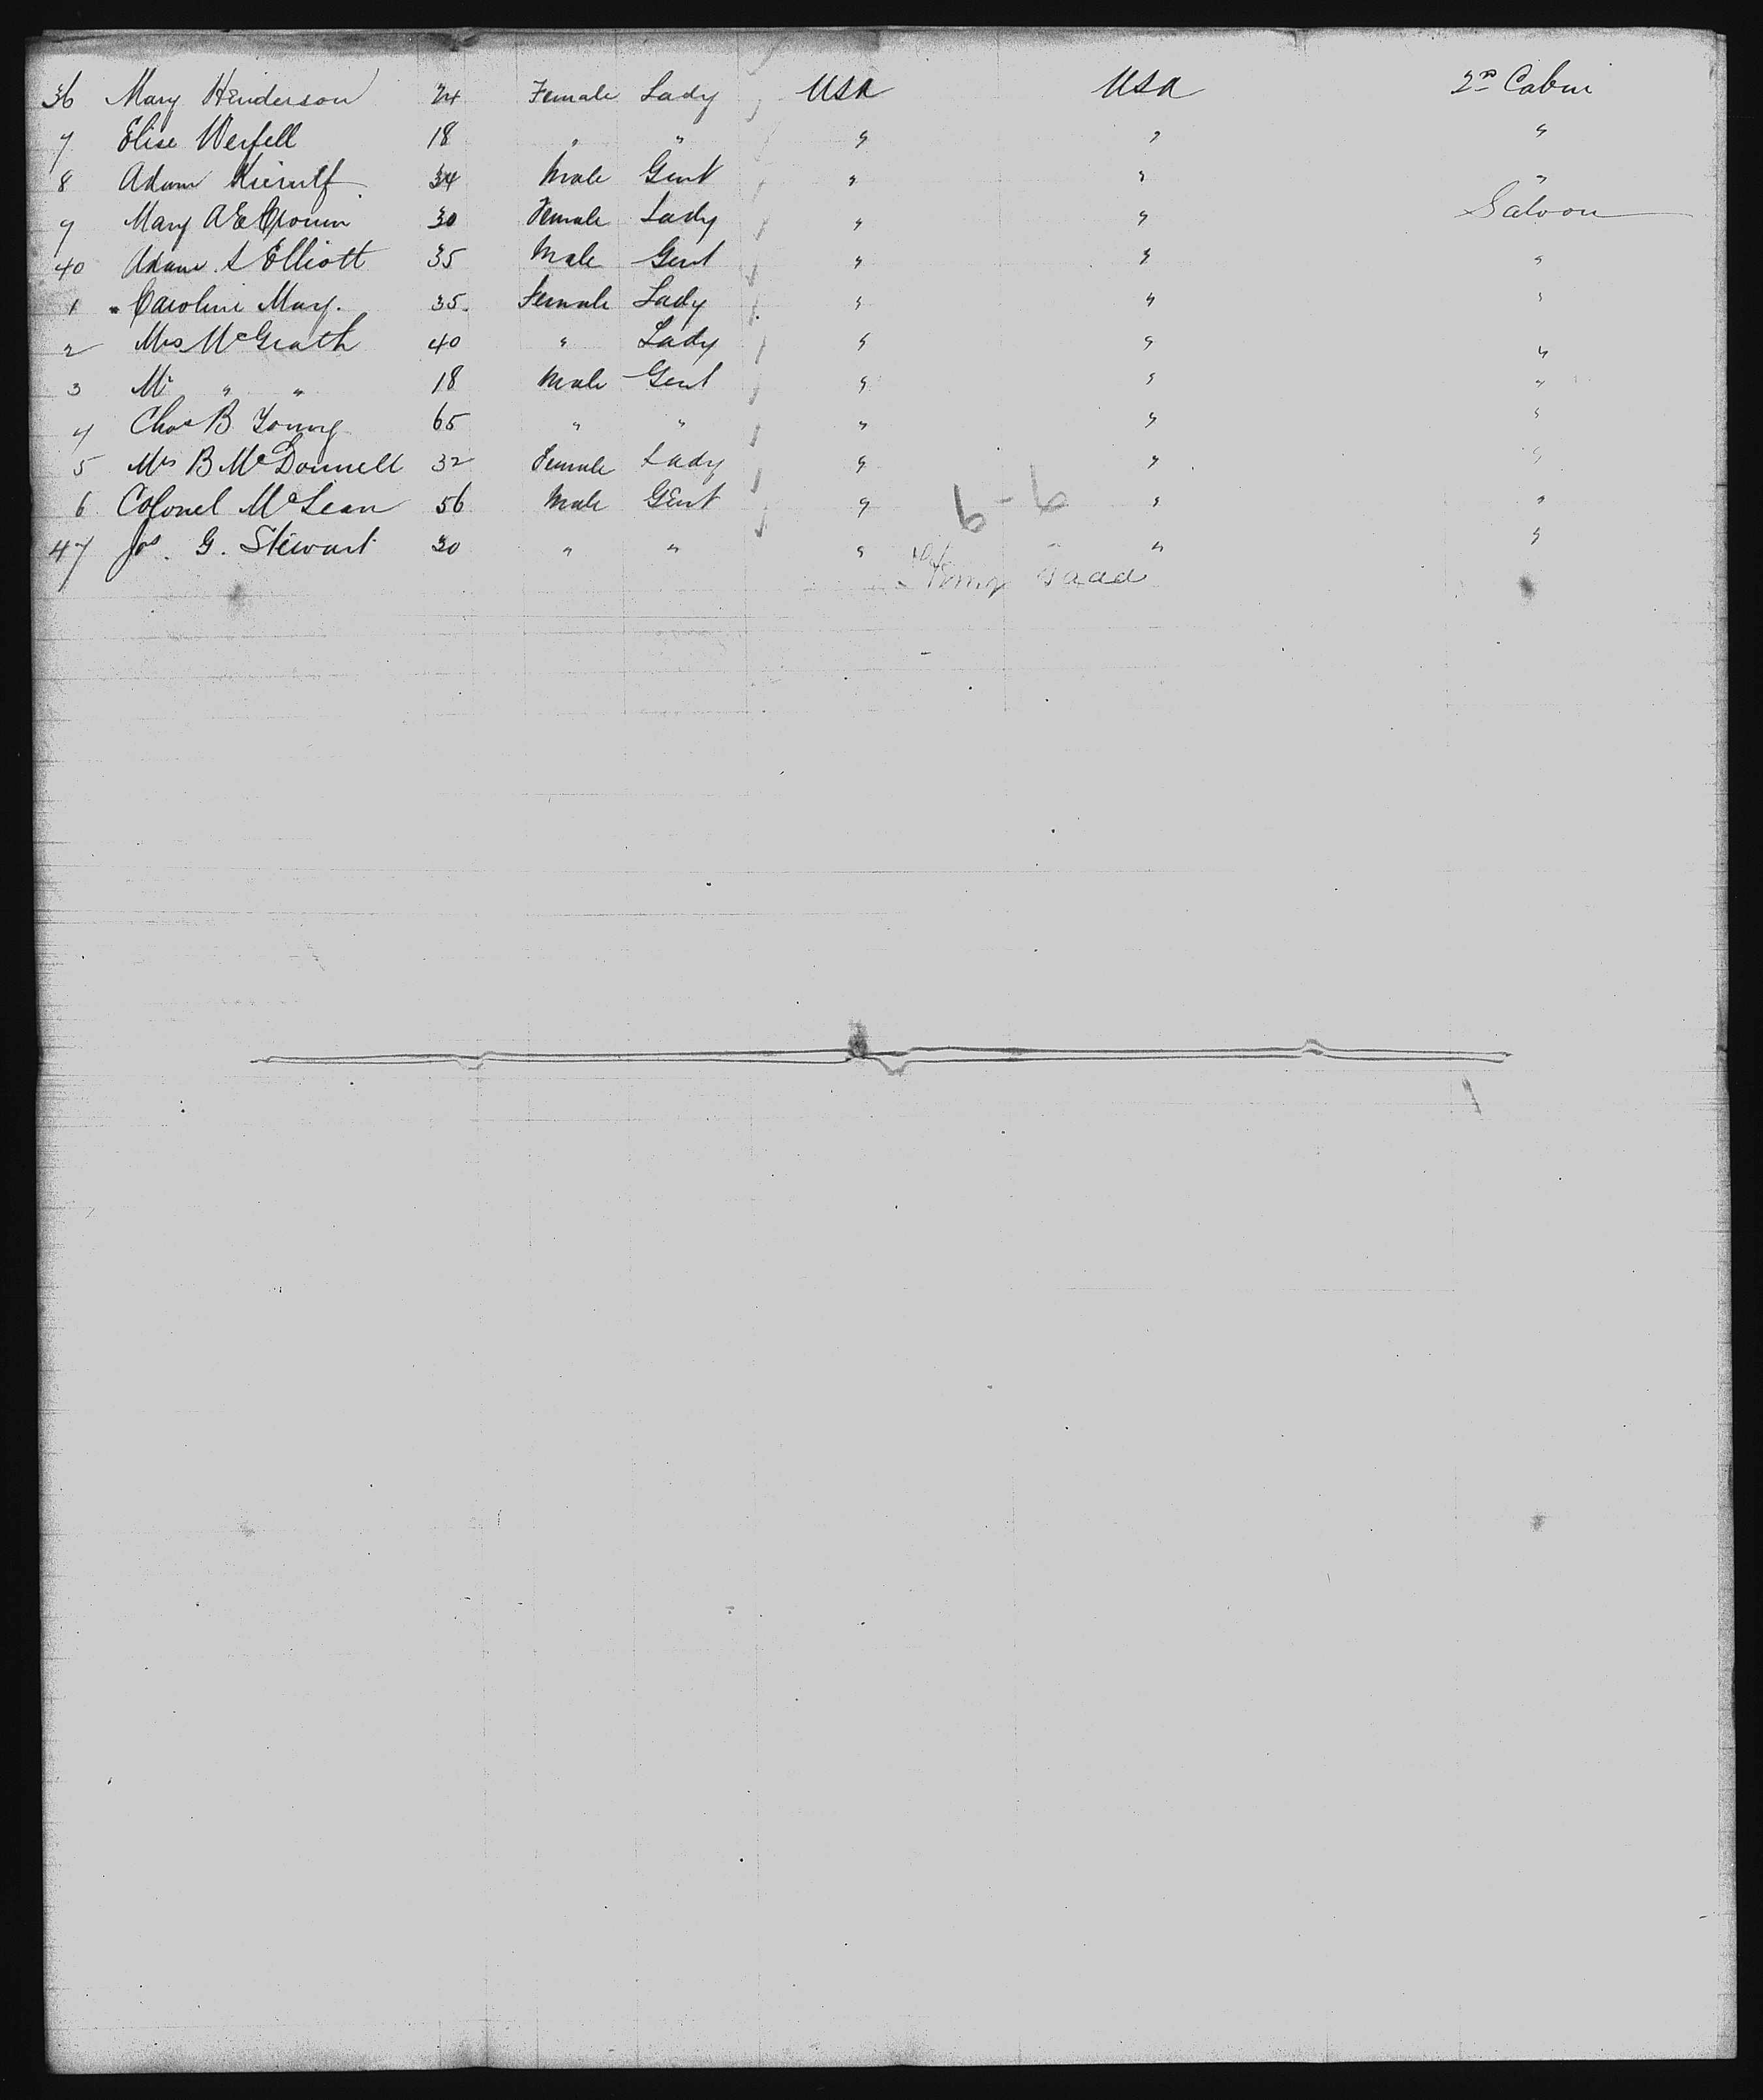 36 Mary Henderson 24 Female Lady USA USA 2nd Cabin
7 Elise Werfell 18 " " " " "
8 Adam 34 Male Gent " " "
9 Mary A E Cronin 30 Female Lady " " Saloon
40 Adam S Elliott 35 Male Gent " " "
1 " Caroline Mary. 35. Female Lady " " "
2 Mrs McGrath 40 " Lady " " "
3 Mr " " 18 Male Gent " " "
4 Chas B Young 65 " " " " "
5 Mrs B McDonnell 32 Female Lady " " "
6 Colonel McLean 56 Male Gent " " "
6-6
47 Jos. G. Stewart 30 " " " " "